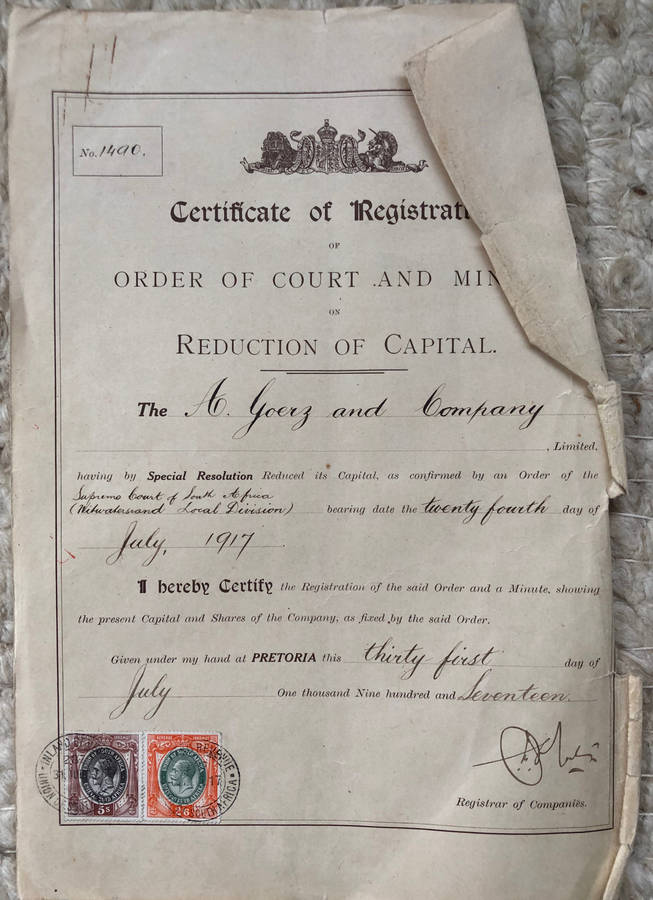 No. 1490.
Certificate of Registrati
OF
ORDER OF COURT AND MIN
ON
REDUCTION OF CAPITAL.
The A. Goerz and Company
, Limited,
having by Special Resolution Reduced its Capital, as confirmed by an Order of the
Supreme Court of South Africa
(Witwatersrand Local Division) bearing date the twenty fourth day of
July, 1917
I hereby Certify the Registration of the said Order and a Minute, showing
the present Capital and Shares of the Company, as fixed by the said Order.
Given under my hand at PRETORIA this thirty first day of
July One thousand Nine hundred and Seventeen.
Registrar of Companies.
INLAND REVENUE
REVENUE
5s
2/6
17